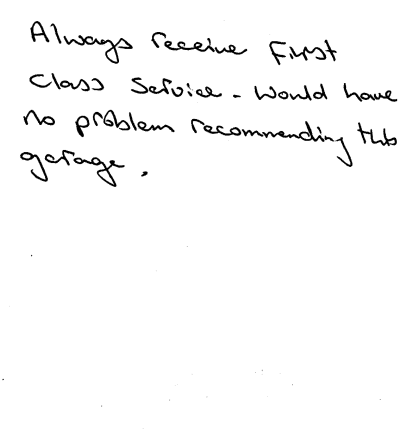 Always receive First
Class Service - Would have
no problem recommending this
garage.